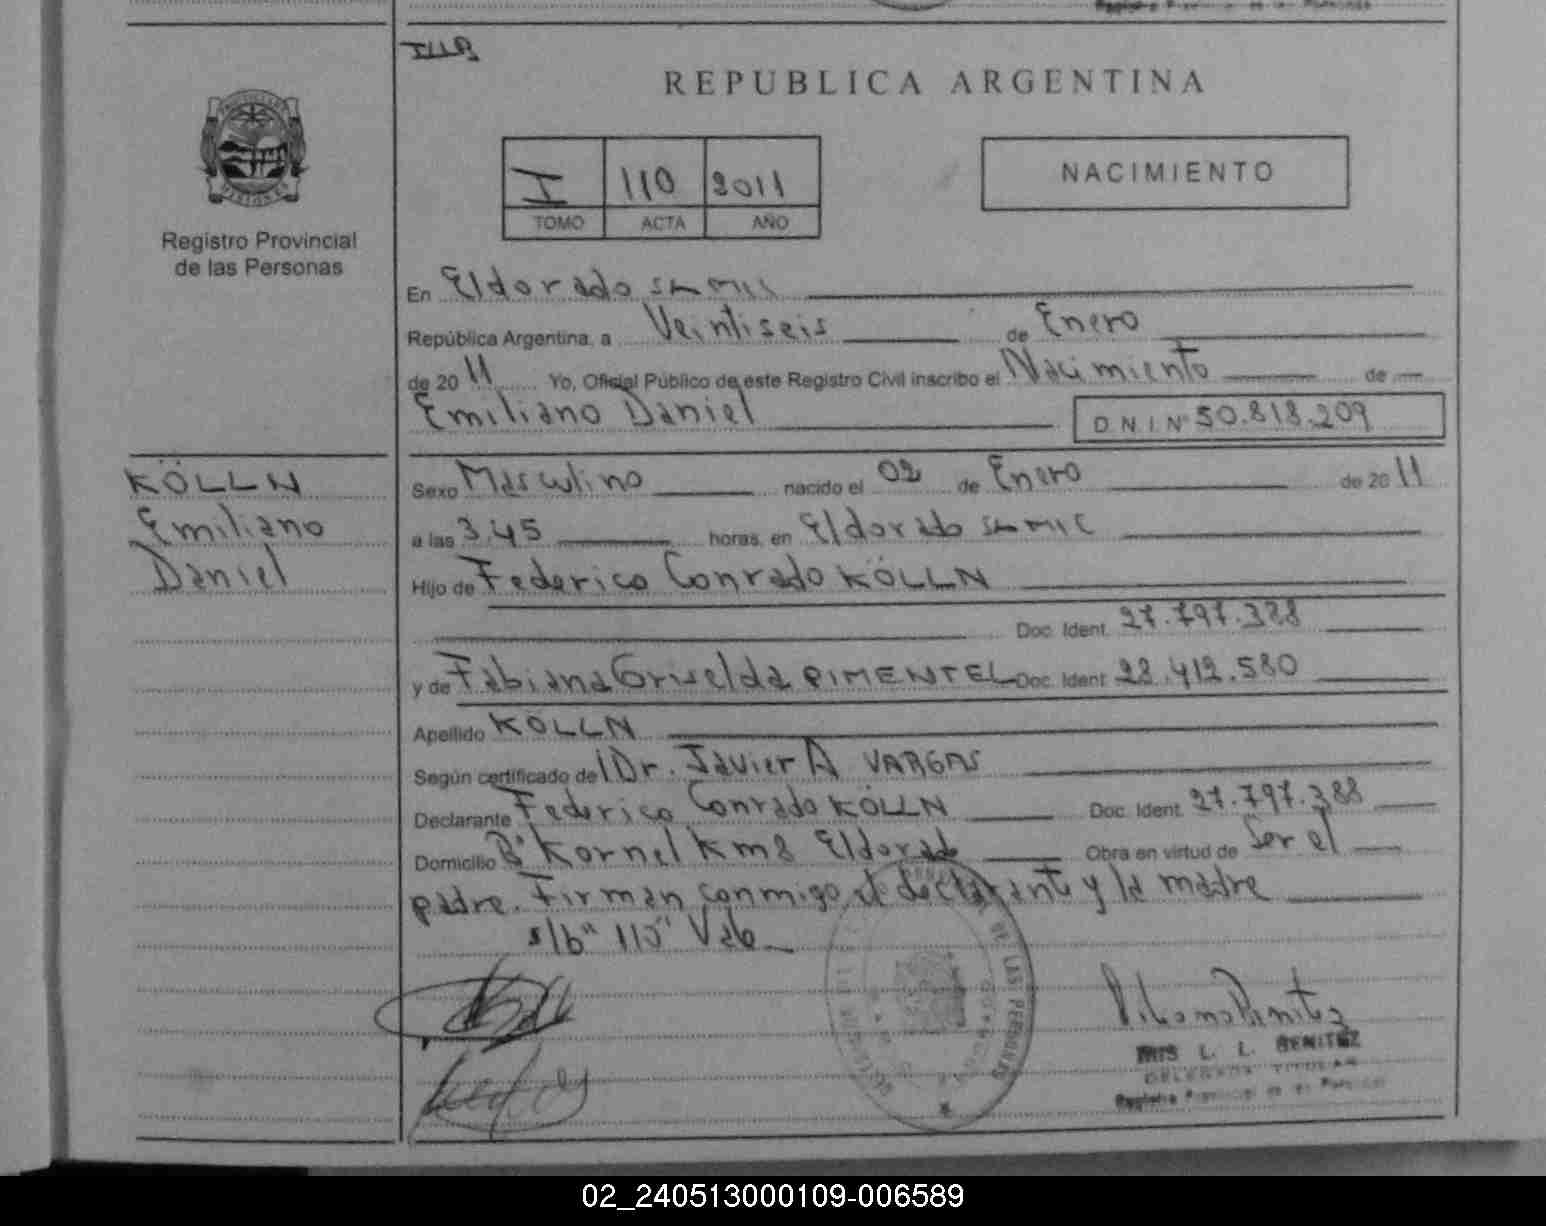 REPUBLICA ARGENTINA
I 110 2011
TOMO ACTA AÑO
NACIMIENTO
Registro Provincial
de las Personas
En Eldorado
República Argentina, a Veintiseis de Enero
de 2011 Yo, Oficial Público de este Registro Civil inscribo el Nacimiento de
Emiliano Daniel D.N.I. Nº 50.818.209
KÖLLN
Emiliano
Daniel
Sexo Masculino nacido el 02 de Enero de 2011
a las 3.45 horas, en Eldorado
Hijo de Federico Conrado KÖLLN
Doc. Ident. 27.797.388
y de Fabiana Griselda PIMENTEL Doc. Ident. 28.412.580
Apellido KÖLLN
Según certificado del Dr. Javier A VARGAS
Declarante Federico Conrado KÖLLN Doc. Ident. 27.797.388
Domicilio Bº Kornel Km 8 Eldorado Obra en virtud de Ser el
padre. Firman conmigo el declarante y la madre
s/b "110" Vale
DE LAS PERSONAS
L. L. BENITEZ
DELEGADA TITULAR
Registro Provincial de las Personas
02_240513000109-006589